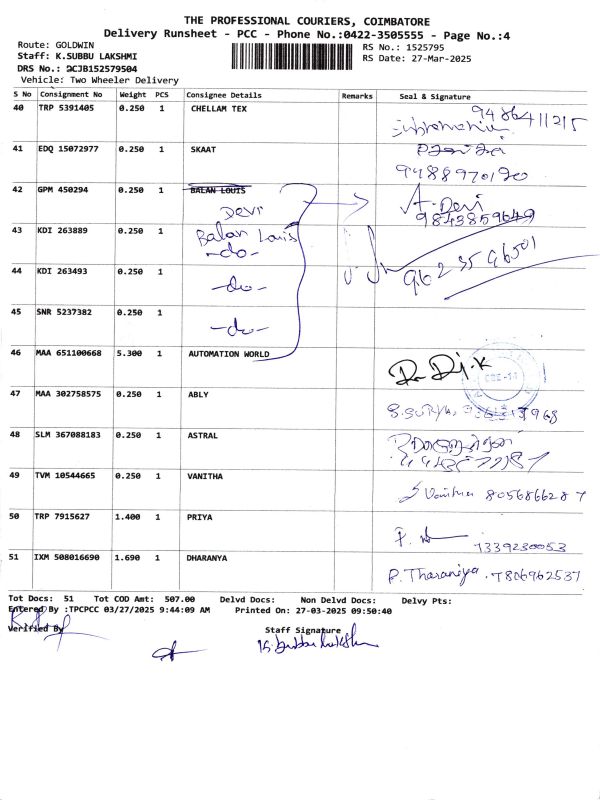 THE PROFESSIONAL COURIERS, COIMBATORE
Delivery Runsheet - PCC - Phone No.:0422-3505555 - Page No.:4
Route: GOLDWIN
Staff: K.SUBBU LAKSHMI
DRS No.: DCJB152579504
Vehicle: Two Wheeler Delivery
RS No.: 1525795
RS Date: 27-Mar-2025
S No Consignment No Weight PCS Consignee Details Remarks Seal & Signature
40 TRP 5391405 0.250 1 CHELLAM TEX 9486411215
41 EDQ 15072977 0.250 1 SKAAT
42 GPM 450294 0.250 1 BALAN LOUIS A. Devi
Devi 9843859649
43 KDI 263889 0.250 1 Balan Louis
-do-
44 KDI 263493 0.250 1 -do- 9623596501
45 SNR 5237382 0.250 1 -do-
46 MAA 651100668 5.300 1 AUTOMATION WORLD
47 MAA 302758575 0.250 1 ABLY
48 SLM 367088183 0.250 1 ASTRAL
49 TVM 10544665 0.250 1 VANITHA Vanitha 8056866287
50 TRP 7915627 1.400 1 PRIYA 7339230053
51 IXM 508016690 1.690 1 DHARANYA P. Tharaniya. 7806962537
Tot Docs: 51 Tot COD Amt: 507.00 Delvd Docs: Non Delvd Docs: Delvy Pts:
Entered By :TPCPCC 03/27/2025 9:44:09 AM Printed On: 27-03-2025 09:50:40
Verified By Staff Signature
K. Subbu Lakshmi